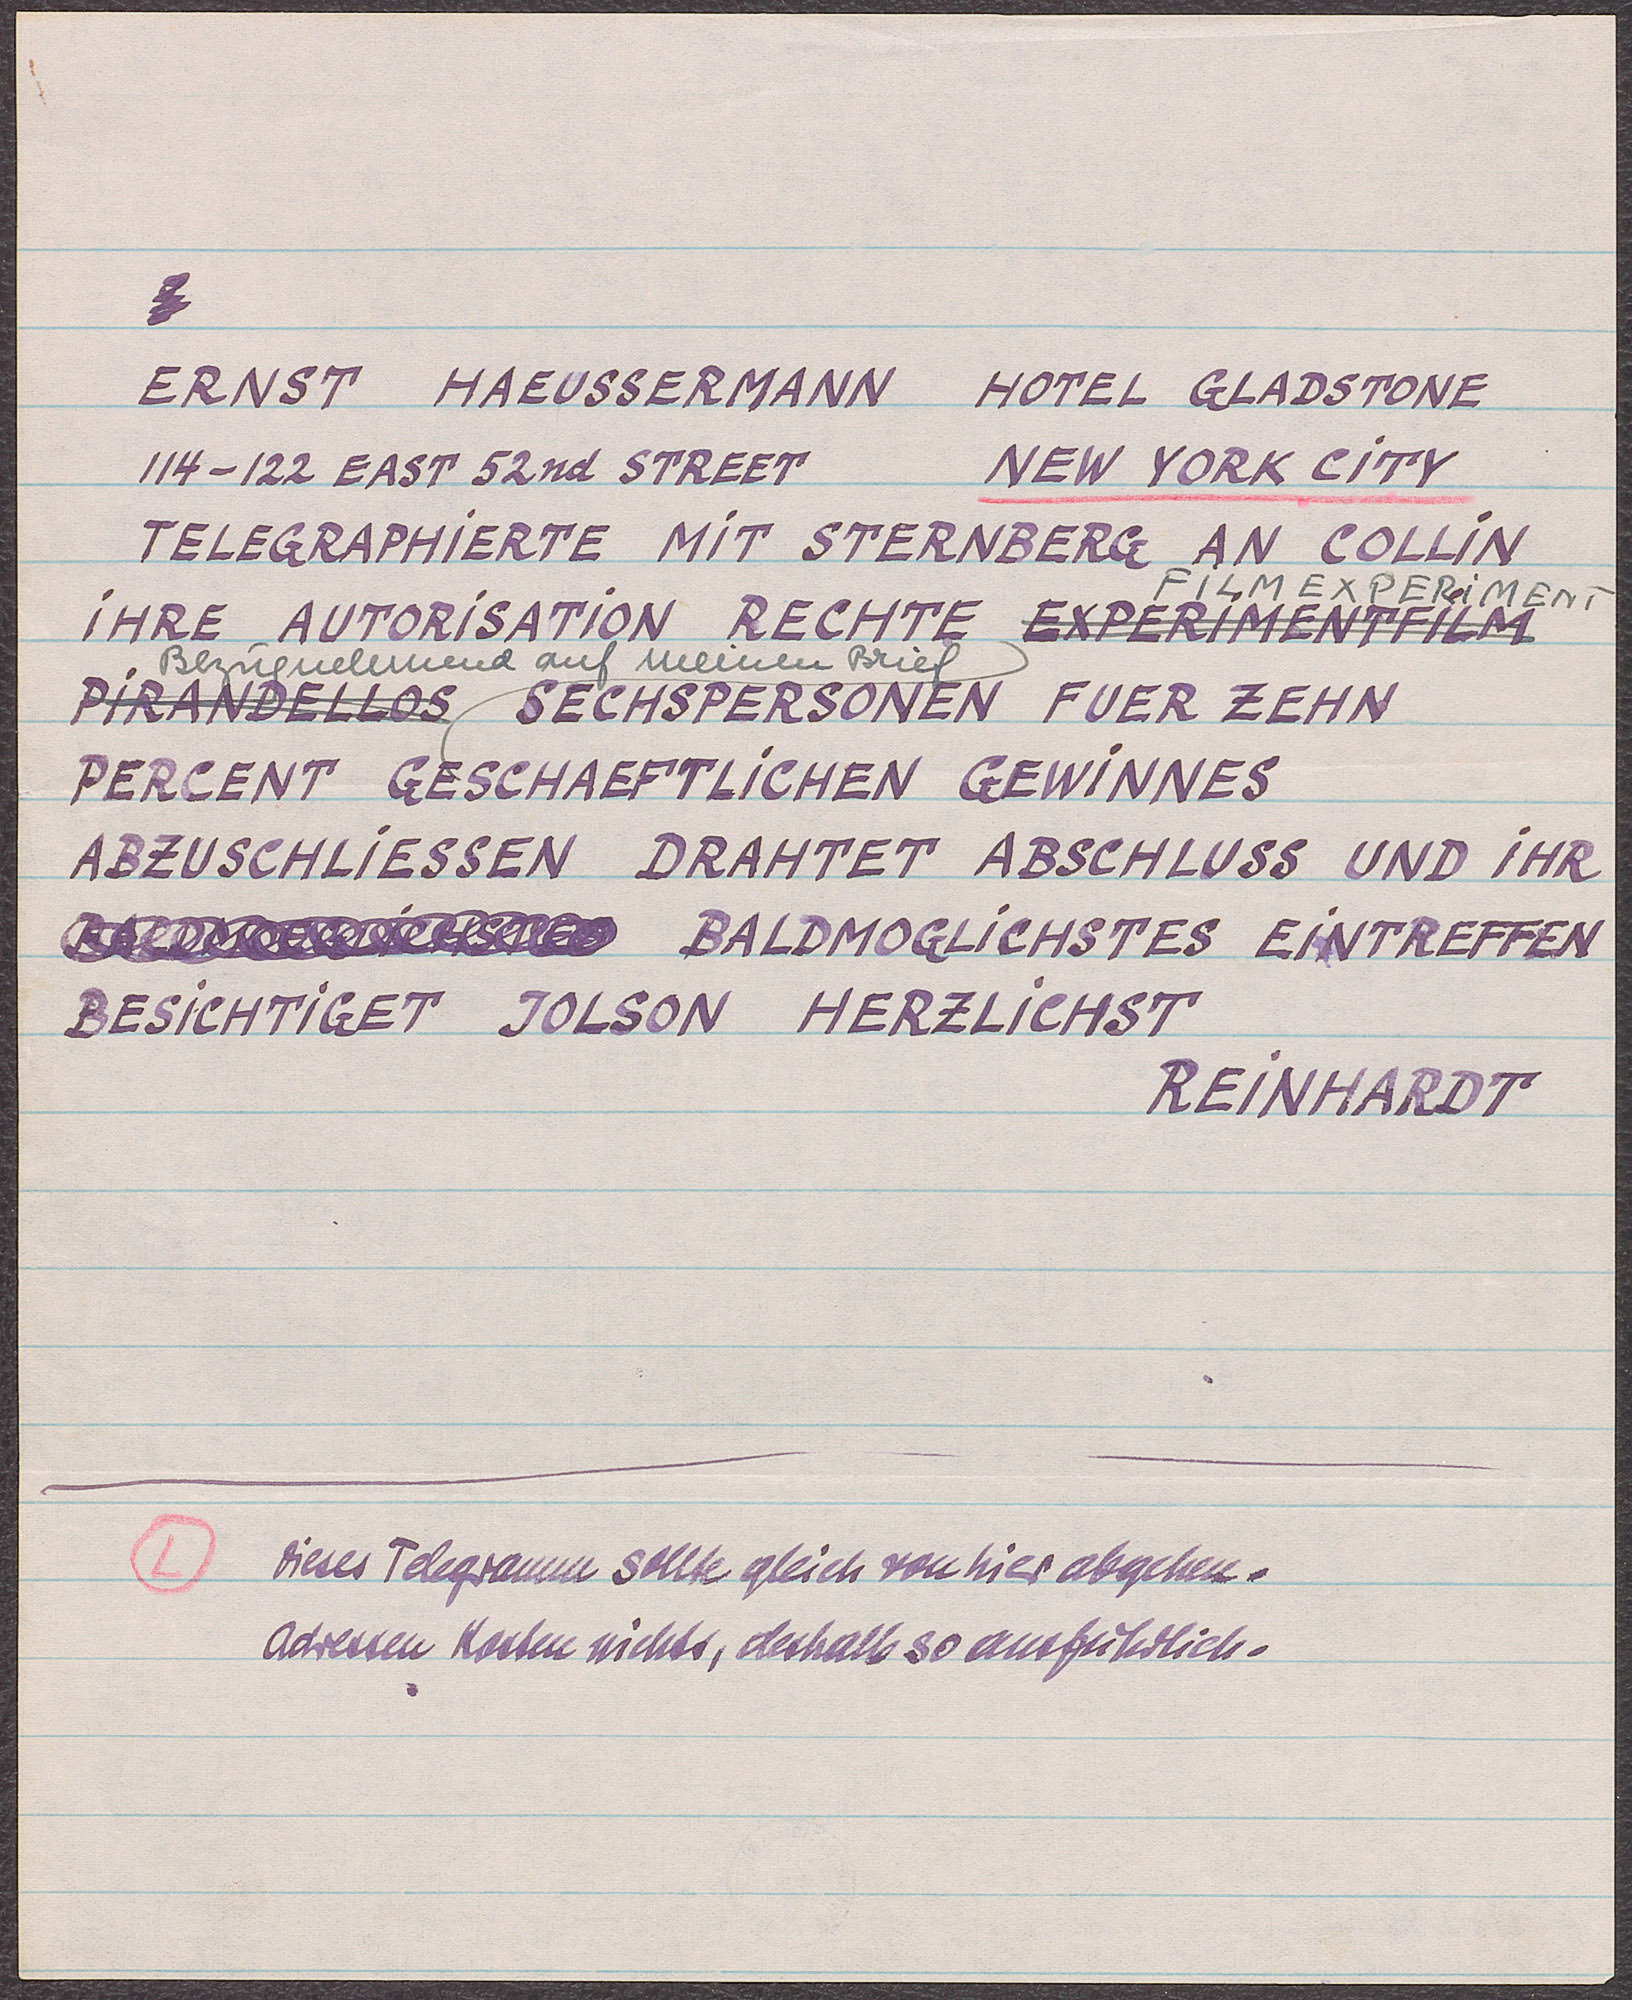 ERNST HAEUSSERMANN HOTEL GLADSTONE
114-122 EAST 52nd STREET NEW YORK CiTY
TELEGRAPHiERTE MiT STERNBERG AN COLLiN
FiLMEXPERiMENT
iHRE AUTORiSATiON RECHTE EXPERiMENTFiLM
Bezugnehmend auf meinen Brief
PiRANDELLOS SECHSPERSONEN FUER ZEHN
PERCENT GESCHAEFTLiCHEN GEWiNNES
ABZUSCHLiESSEN DRAHTET ABSCHLUSS UND iHR
BALDMOGLiCHSTES EiNTREFFEN
BESiCHTiGET JOLSON HERZLiCHST
REiNHARDT
L Dieses Telegramm sollte gleich von hier abgehen.
Adressen Kosten nichts, deshalb so ausführlich.